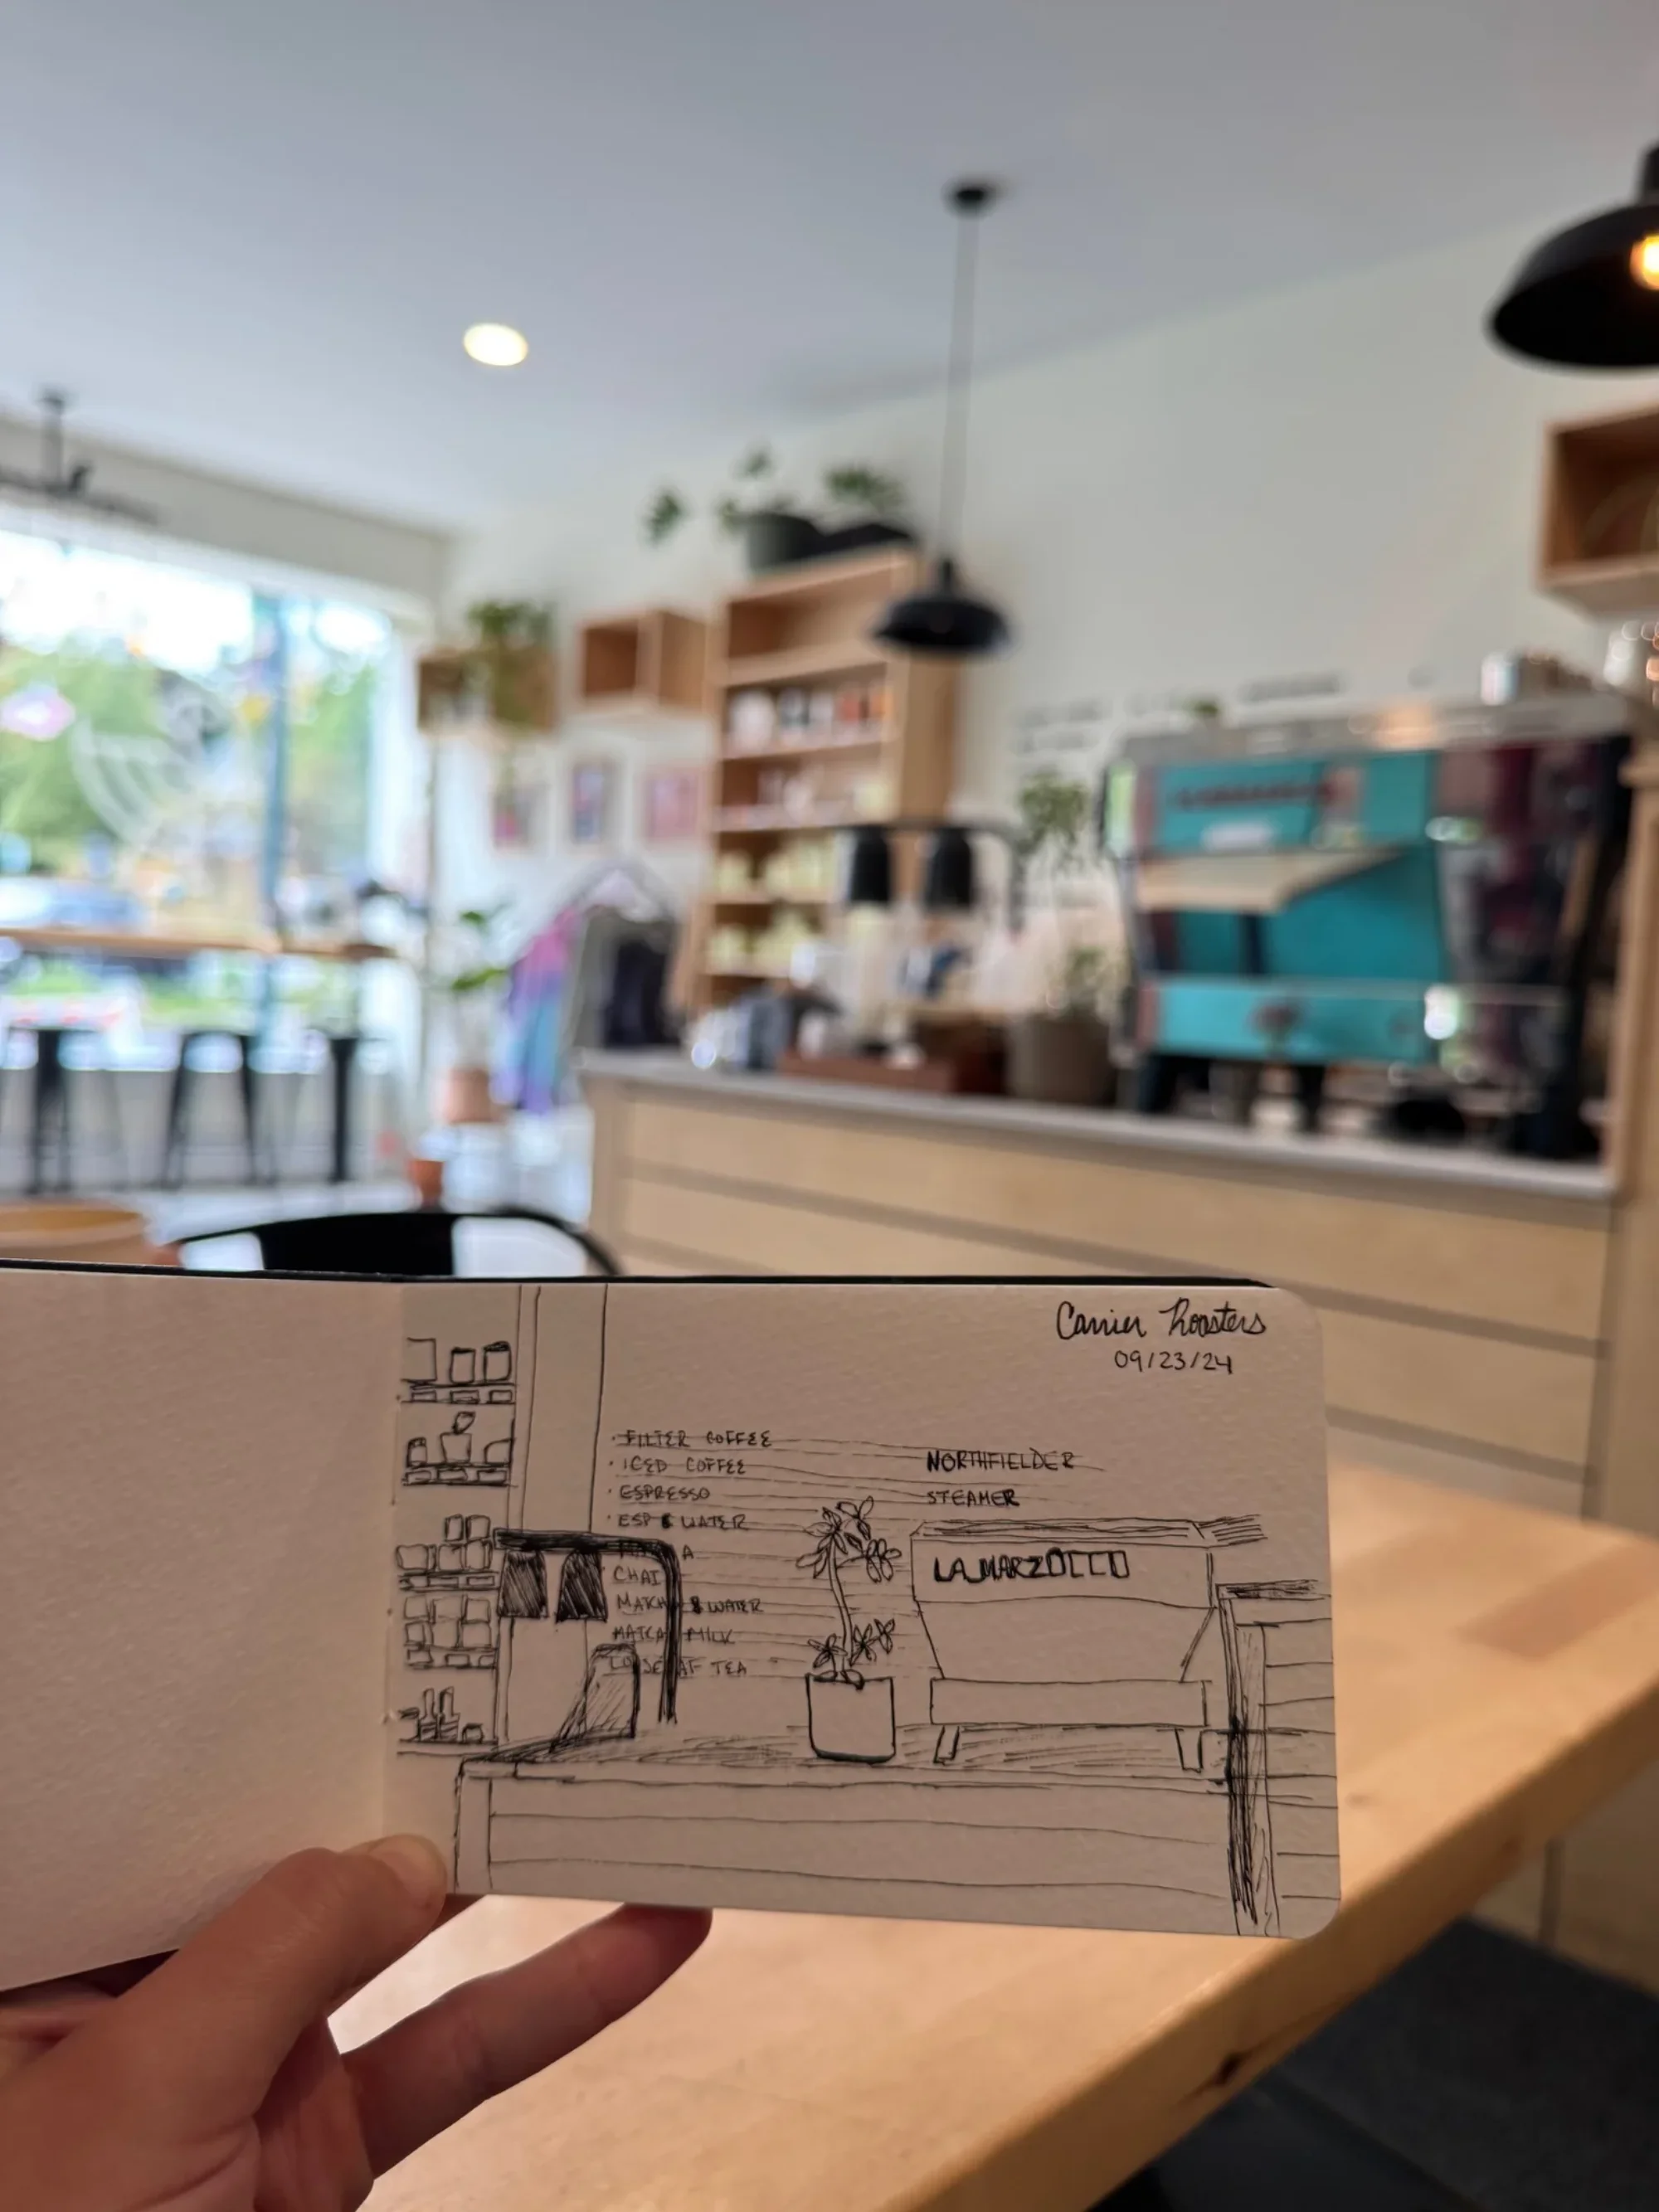 Carrier Roasters
09/23/24
· FILTER COFFEE
· ICED COFFEE
· ESPRESSO
· ESP & WATER
CHAI
MATCH & WATER
MATCA MILK
LOOSE AF TEA
NORTHFIELDER
STEAMER
LA MARZOCCO